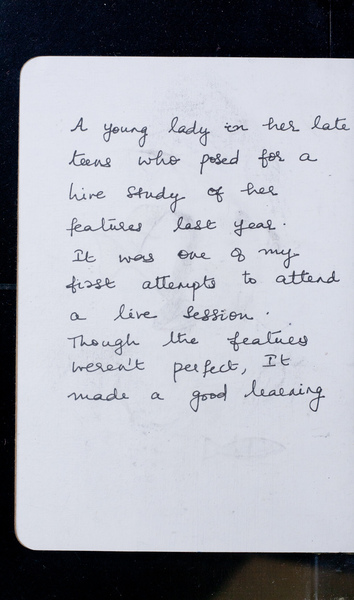 A young lady in her late
teens who posed for a
live study of her
features last year.
It was one of my
first attempts to attend
a live session.
Though the features
weren't perfect, It
made a good learning